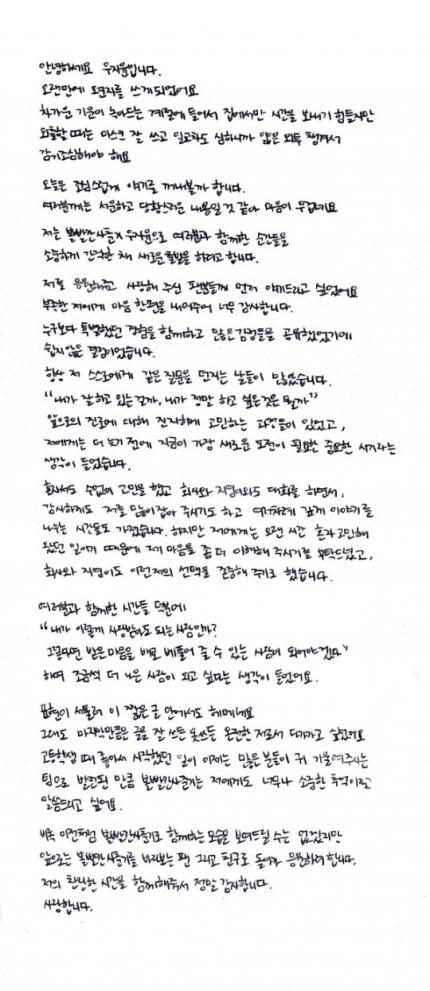 안녕하세요 우지윤입니다.
오랜만에 손편지를 쓰게되었어요
차가운 기운이 녹아드는 계절에 들어서 집에서만 시간을 보내기 힘들지만
외출할 때는 마스크 잘 쓰고 일교차도 심하니까 얇은 외투 챙겨서
감기조심해야 해요
오늘은 조심스럽게 얘기를 꺼내볼까 합니다.
여러분께는 서운하고 당황스러운 내용일 것 같아 마음이 무겁네요
저는 볼빨간사춘기 우지윤으로 여러분과 함께한 순간들을
소중하게 간직한 채 새로운 출발을 하려고 합니다.
저를 응원해주고 사랑해 주신 팬분들께 먼저 얘기드리고 싶었어요
부족한 저에게 마음 한편을 내어주어 너무 감사합니다.
누구보다 특별했던 경험을 함께하고 많은 감정들을 공유했었기에
쉽지않은 결정이었습니다.
항상 저 스스로에게 같은 질문을 던지는 날들이 많았습니다.
“내가 잘 하고 있는걸까, 내가 정말 하고 싶은 것은 뭘까”
앞으로의 진로에 대해 진지하게 고민하는 과정들이 있었고,
저에게는 더 늦기 전에 지금이 가장 새로운 도전이 필요한 중요한 시기라는
생각이 들었습니다.
혼자서도 수없이 고민을 했고 회사와 지영이와도 대화를 하면서,
감사하게도 저를 많이 잡아 주시기도 하고 여러차례 깊게 이야기를
나누는 시간들도 가졌습니다. 하지만 저에게는 오랜 시간 혼자 고민해
왔던 일이기 때문에 제 마음을 좀 더 이해해 주시기를 부탁드렸고,
회사와 지영이도 이런 저의 선택을 존중해 주기로 했습니다.
여러분과 함께한 시간들 덕분에
“내가 이렇게 사랑받아도 되는 사람인가?
그렇다면 받은 마음을 배로 베풀어 줄 수 있는 사람이 되어야겠다”
하며 조금씩 더 나은 사람이 되고 싶다는 생각이 들었어요.
표현이 서툴러 이 짧은 글 안에서도 헤매네요
그래도 마지막만큼은 글을 잘 쓰든 못쓰든 온전한 저로서 다가가고 싶었어요
고등학생 때 좋아서 시작했던 일이 이제는 많은 분들이 귀 기울여주시는
팀으로 발전된 만큼 볼빨간사춘기는 저에게도 너무나 소중한 추억이라고
말씀드리고 싶어요.
비록 이전처럼 볼빨간사춘기로 함께하는 모습을 보여드릴 수는 없겠지만
앞으로는 볼빨간 사춘기를 바라보는 팬 그리고 친구로 돌아가 응원하려 합니다.
저의 찬란한 시간을 함께해주셔서 정말 감사합니다.
사랑합니다.